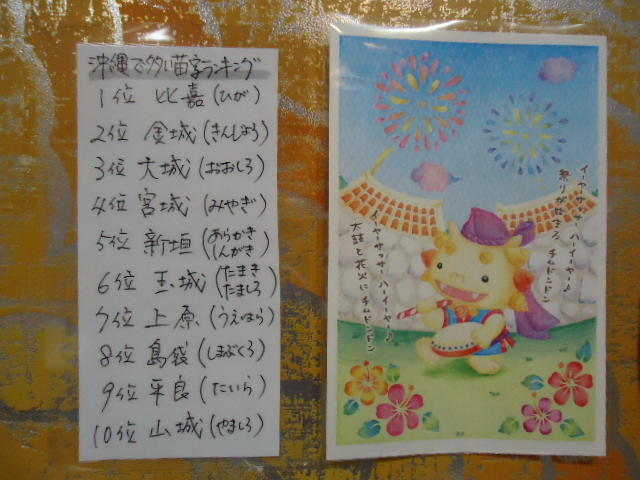 沖縄で多い苗字ランキング
1位 比嘉(ひが)
2位 金城(きんじょう)
3位 大城(おおしろ)
4位 宮城(みやぎ)
5位 新垣(あらかき しんがき)
6位 玉城(たまき たましろ)
7位 上原(うえはら)
8位 島袋(しまぶくろ)
9位 平良(たいら)
10位 山城(やましろ)
イーヤーサッサー ハーイーヤー♪
祭りがはじまる チムドンドン
イーヤーサッサー ハーイーヤー♪
太鼓と花火に チムドンドン